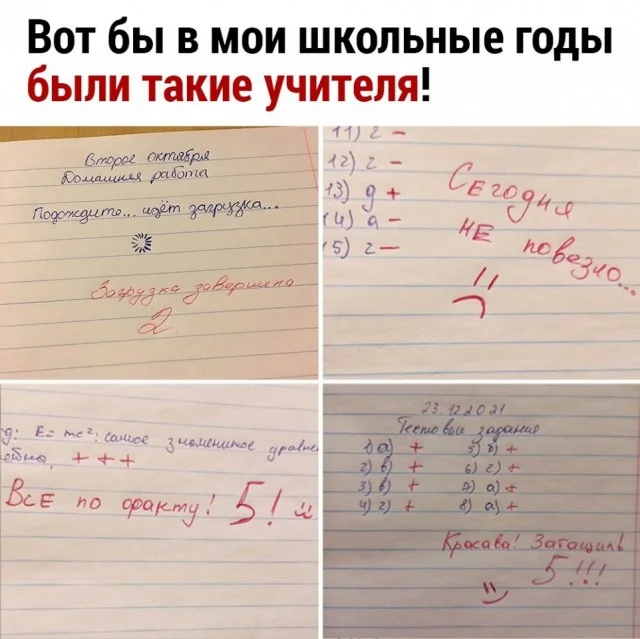 Вот бы в мои школьные годы
были такие учителя!
Второе октября
Домашняя работа
Подождите... идёт загрузка...
Загрузка завершена
2
11) г –
12) г –
13) д +
14) а –
15) г –
Сегодня
не повезло...
д: E = mc²: самое знаменитое уравне
+ + +
Всё по факту! 5!
23.12.2021
Тестовые задания
1) а) + 5) б) +
2) в) + 6) г) +
3) в) + 7) а) +
4) г) + 8) а) +
Красава! Затащил
5!!!